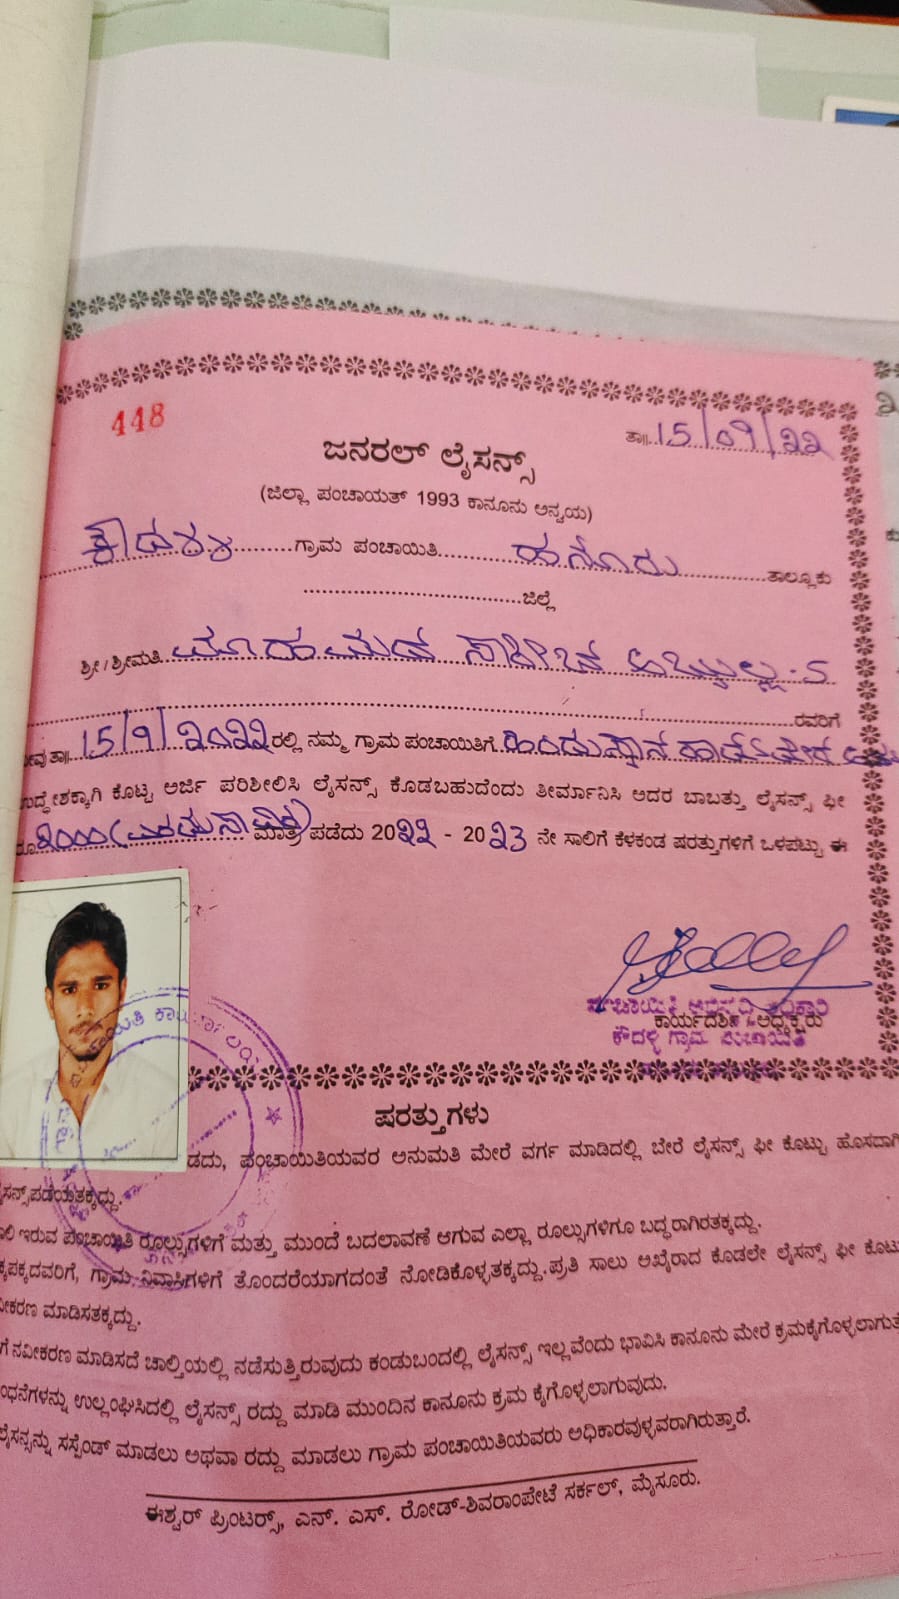 448
ತಾ॥ 15/09/೨೨
ಜನರಲ್ ಲೈಸನ್ಸ್
(ಜಿಲ್ಲಾ ಪಂಚಾಯತ್ 1993 ಕಾನೂನು ಅನ್ವಯ)
ಕೌದಳ್ಳಿ ಗ್ರಾಮ ಪಂಚಾಯಿತಿ ಹನೂರು ತಾಲ್ಲೂಕು
ಜಿಲ್ಲೆ
ಶ್ರೀ / ಶ್ರೀಮತಿ
ರವರಿಗೆ
ತಾ॥ 15/9/೨೦೨೨ ರಲ್ಲಿ ನಮ್ಮ ಗ್ರಾಮ ಪಂಚಾಯಿತಿಗೆ
ಉದ್ದೇಶಕ್ಕಾಗಿ ಕೊಟ್ಟ ಅರ್ಜಿ ಪರಿಶೀಲಿಸಿ ಲೈಸನ್ಸ್ ಕೊಡಬಹುದೆಂದು ತೀರ್ಮಾನಿಸಿ ಅದರ ಬಾಬತ್ತು ಲೈಸನ್ಸ್ ಫೀ
ರೂ ೨೦೦೦ ಮಾತ್ರ ಪಡೆದು 20೨೨ - 20೨3 ನೇ ಸಾಲಿಗೆ ಕೆಳಕಂಡ ಷರತ್ತುಗಳಿಗೆ ಒಳಪಟ್ಟು ಈ
ಕಾರ್ಯದರ್ಶಿ / ಅಧ್ಯಕ್ಷರು
ಕೌದಳ್ಳಿ ಗ್ರಾಮ ಪಂಚಾಯಿತಿ
ಷರತ್ತುಗಳು
ಪಂಚಾಯಿತಿಯವರ ಅನುಮತಿ ಮೇರೆ ವರ್ಗ ಮಾಡಿದಲ್ಲಿ ಬೇರೆ ಲೈಸನ್ಸ್ ಫೀ ಕೊಟ್ಟು ಹೊಸದಾಗಿ
ಇರುವ ಪಂಚಾಯಿತಿ ರೂಲ್ಸುಗಳಿಗೆ ಮತ್ತು ಮುಂದೆ ಬದಲಾವಣೆ ಆಗುವ ಎಲ್ಲಾ ರೂಲ್ಸುಗಳಿಗೂ ಬದ್ಧರಾಗಿರತಕ್ಕದ್ದು.
ಗ್ರಾಮ ನಿವಾಸಿಗಳಿಗೆ ತೊಂದರೆಯಾಗದಂತೆ ನೋಡಿಕೊಳ್ಳತಕ್ಕದ್ದು. ಪ್ರತಿ ಸಾಲು ಅಖೈರಾದ ಕೂಡಲೇ ಲೈಸನ್ಸ್ ಫೀ ಕೊಟ್ಟು
ಮಾಡಿಸತಕ್ಕದ್ದು.
ನವೀಕರಣ ಮಾಡಿಸದೆ ಚಾಲ್ತಿಯಲ್ಲಿ ನಡೆಸುತ್ತಿರುವುದು ಕಂಡುಬಂದಲ್ಲಿ ಲೈಸನ್ಸ್ ಇಲ್ಲವೆಂದು ಭಾವಿಸಿ ಕಾನೂನು ಮೇರೆ ಕ್ರಮಕೈಗೊಳ್ಳಲಾಗುತ
ಉಲ್ಲಂಘಿಸಿದಲ್ಲಿ ಲೈಸನ್ಸ್ ರದ್ದು ಮಾಡಿ ಮುಂದಿನ ಕಾನೂನು ಕ್ರಮ ಕೈಗೊಳ್ಳಲಾಗುವುದು.
ಸಸ್ಪೆಂಡ್ ಮಾಡಲು ಅಥವಾ ರದ್ದು ಮಾಡಲು ಗ್ರಾಮ ಪಂಚಾಯಿತಿಯವರು ಅಧಿಕಾರವುಳ್ಳವರಾಗಿರುತ್ತಾರೆ.
ಈಶ್ವರ್ ಪ್ರಿಂಟರ್ಸ್, ಎನ್. ಎಸ್. ರೋಡ್-ಶಿವರಾಂಪೇಟೆ ಸರ್ಕಲ್, ಮೈಸೂರು.